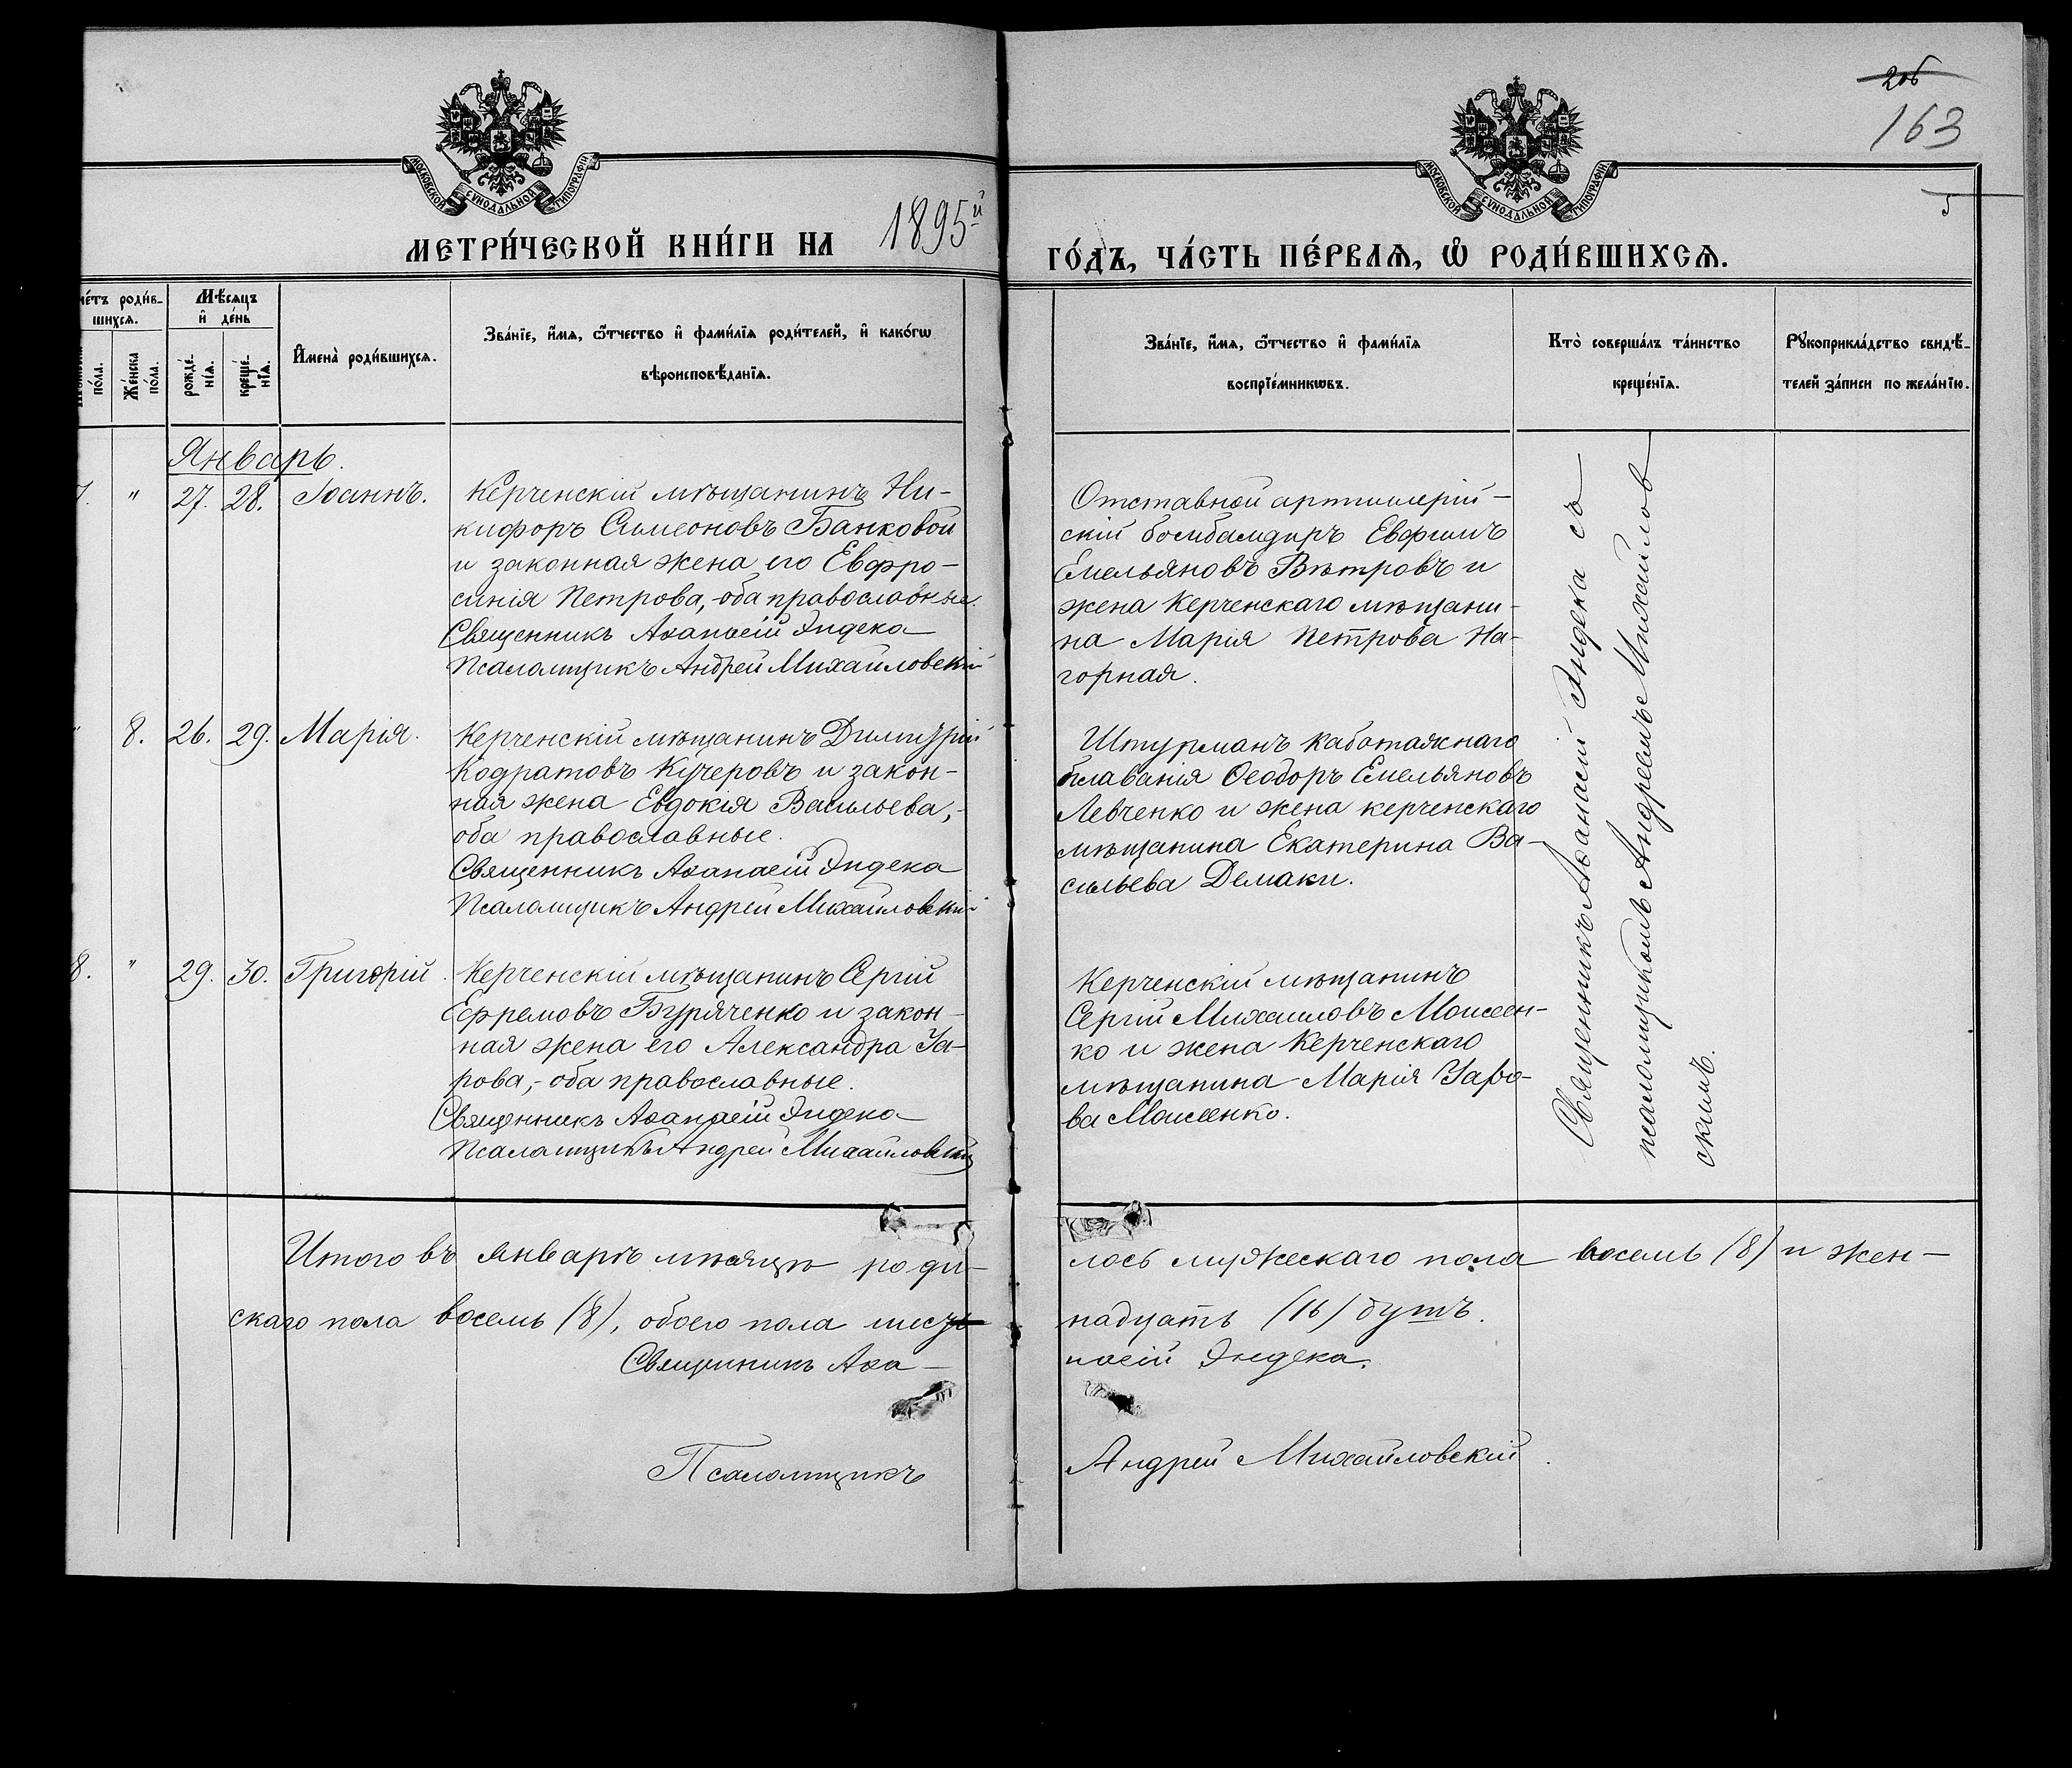 206
163
5
МОСКОВСКОЙ СѴНОДАЛЬНОЙ ТИПОГРАФІИ
МОСКОВСКОЙ СѴНОДАЛЬНОЙ ТИПОГРАФІИ
МЕТРИ́ЧЕСКОЙ КНИ́ГИ НА 1895й
ГО́ДЪ, ЧА́СТЬ ПЕ́РВАѦ, Ѡ҆ РОДИ́ВШИХСѦ.
че́тъ роди́в-
шихсѧ.
по́ла.
Же́нска
по́ла.
Мѣ́сѧцъ
и҆ де́нь
рожде́-
нїѧ.
креще́-
нїѧ.
И҆мена̀ роди́вшихсѧ.
Зва́нїе, и҆́мѧ, ѻ҆́тчество и҆ фами́лїѧ роди́телей, и҆ како́гѡ
вѣроисповѣ́данїѧ.
Зва́нїе, и҆́мѧ, ѻ҆́тчество и҆ фами́лїѧ
воспрїе́мникѡвъ.
Кто̀ соверша́лъ та́инство
креще́нїѧ.
Рꙋкоприкла́дство свидѣ́-
телей за́писи по жела́нїю.
Январь.
7. " 27. 28. Іоаннъ.
Керченскій мѣщанинъ Ни-
кифоръ Симеоновъ Банковой
и законная жена его Евфро-
синія Петрова,- оба православные.
Священникъ Аѳанасій Эндека
Псаломщикъ Андрей Михайловскій
Отставной артиллерій-
скій бомбардиръ Евфимъ
Емельяновъ Вѣтровъ и
жена Керченскаго мѣщани-
на Марія Петрова На-
горная.
" 8. 26. 29. Марія.
Керченскій мѣщанинъ Димитрій
Кодратовъ Кучеровъ и закон-
ная жена Евдокія Васильева,-
оба православные.
Священникъ Аѳанасій Эндека
Псаломщикъ Андрей Михайловскій
Штурманъ каботажнаго
плаванія Ѳеодоръ Емельяновъ
Левченко и жена керченскаго
мѣщанина Екатерина Ва-
сильева Демаки.
8. " 29. 30. Григорій.
Керченскій мѣщанинъ Сергій
Ефремовъ Буряченко и закон-
ная жена его Александра Уа-
рова,- оба православные.
Священникъ Аѳанасій Эндека
Псаломщикъ Андрей Михайловскій
Керченскій мѣщанинъ
Сергій Михаиловъ Моисеен-
ко и жена Керченскаго
мѣщанина Марія Уаро-
ва Моисеенко.
Священникъ Аѳанасій Эндека съ
псаломщикомъ Андреемъ Михайлов
скимъ.
Итого въ январѣ мѣсяцѣ роди-
лось мужескаго пола восемь (8) и жен-
скаго пола восемь (8), обоего пола шест-
надцать (16) душъ.
Священникъ Аѳа-
насій Эндека.
Псаломщикъ
Андрей Михайловскій.